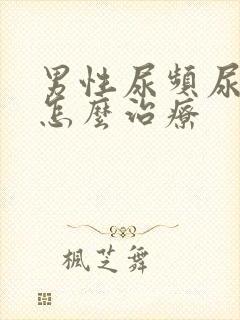 男性尿頻尿
怎麼治療
楓芝舞